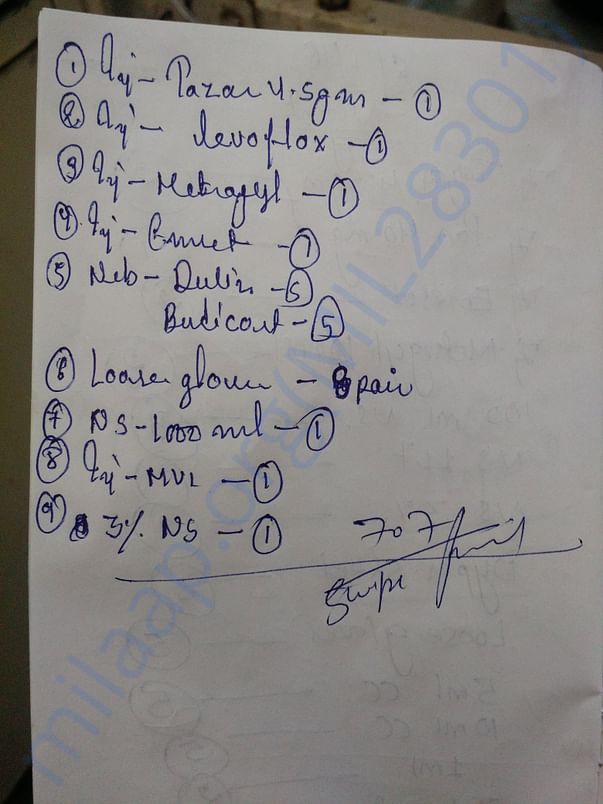 ① Inj - Tazar 4.5gm - ①
② Inj - levoflox - ①
③ Inj - Metrogyl - ①
④ Inj - Emset - ①
⑤ Neb - Dulin - 5
Budicort - 5
⑥ Loose glove - 8 pair
⑦ NS - 1000 ml - ①
⑧ Inj - MVI - ①
⑨ 3% NS - ①
707
milaap.org(MIL283301)
Loose
5ml CC
10 ml CC
1 ml